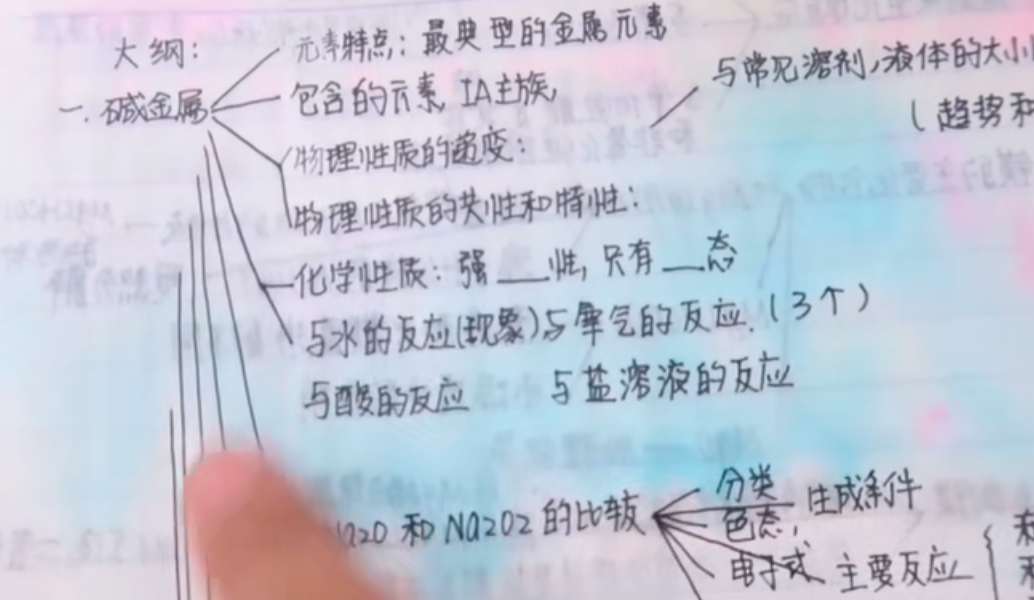 大纲:
元素特点:最典型的金属元素
一.碱金属
包含的元素 IA主族,
与常见溶剂,液体的大小
(趋势和
物理性质的递变:
物理性质的共性和特性:
化学性质:强__性,只有__态
与水的反应(现象)与氧气的反应.(3个)
与酸的反应 与盐溶液的反应
a2O 和 Na2O2 的比较
分类
生成条件
色态,
电子式 主要反应